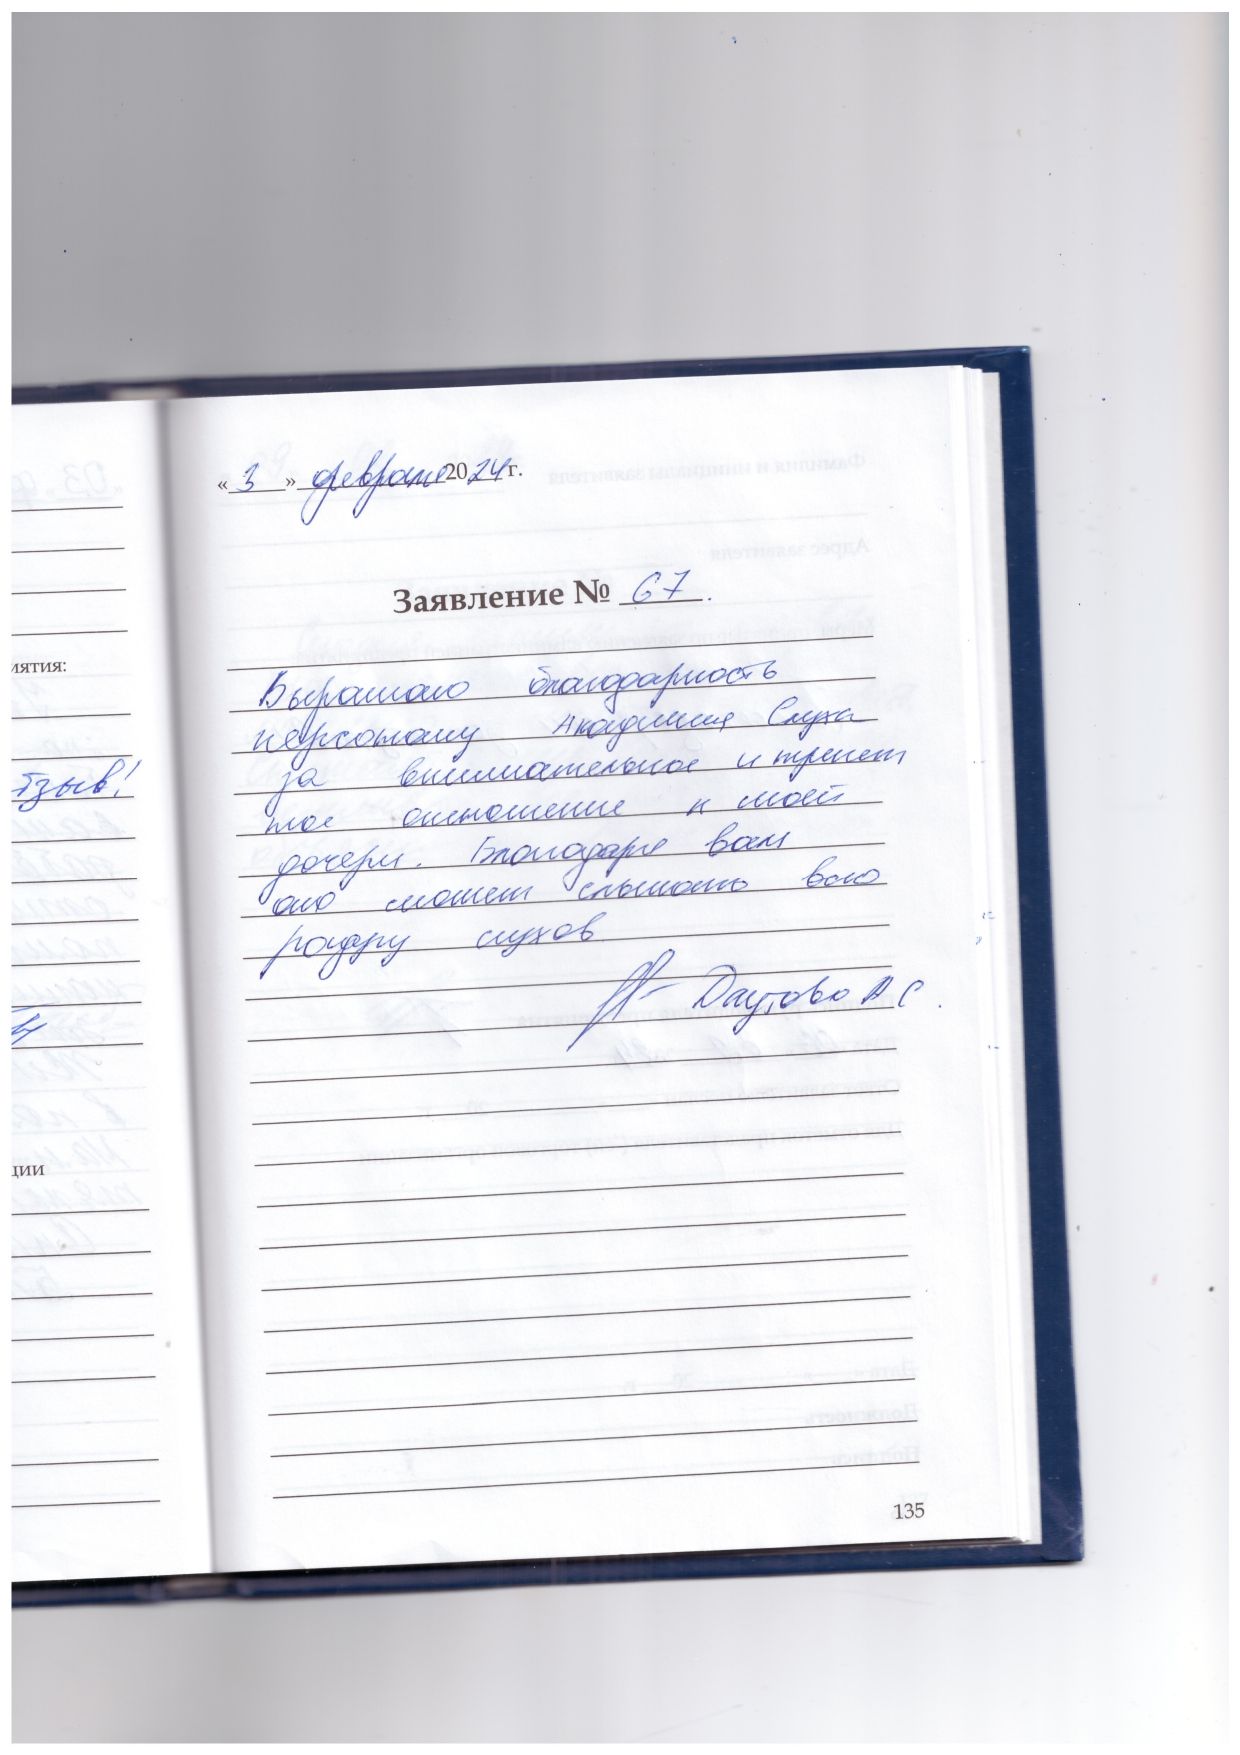 « 3 » февраля 2024 г.
Заявление № 67.
Выражаю благодарность
персоналу Академия Слуха
за внимательное и трепет
ное отношение к моей
дочери. Благодаря вам
она может слышать всю
радугу слухов
Даутова А С.
иятия:
тзыв!
ции
135